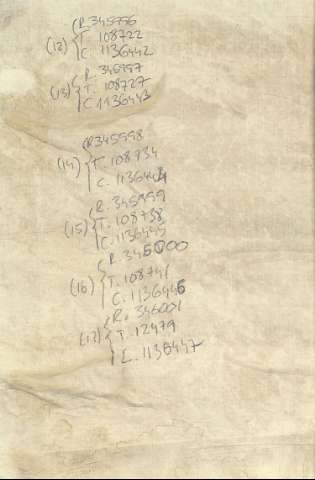 R. 345996
(12) T. 108722
C. 1136442
R. 345997
(13) T. 108727
C. 1136443
R 345998
(14) T. 108734
C. 1136444
R. 345999
(15) T. 108738
C. 1136445
R. 345000
(16) T. 108741
C. 1136446
R. 346001
(17) T. 12479
C. 1136447